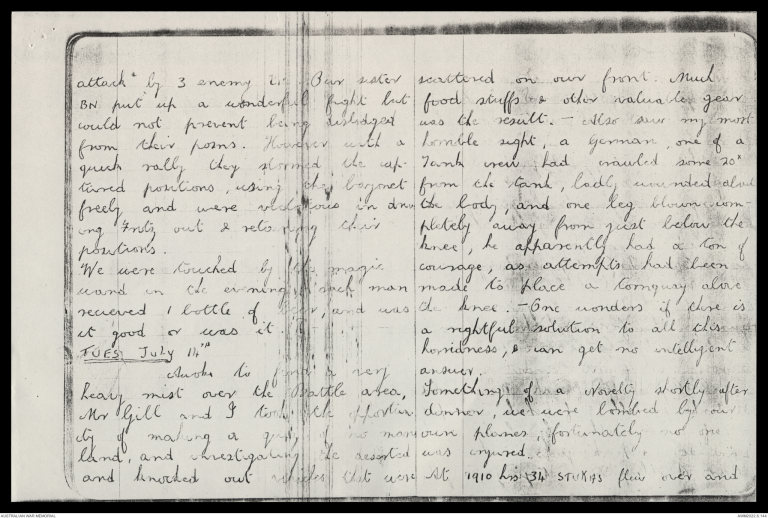 attack by 3 enemy Our sister
BN put up a wonderful fight but
would not prevent being dislodged
from their posns. However with a
quick rally they stormed the cap-
tured positions, using the bayonet
freely and were victorious in driv-
ing Fritz out & retaining their
positions.
We were touched by the magic
wand in the evening, each man
recieved 1 bottle of beer, and was
it good or was it.
TUES July 14th
Awoke to find a very
heavy mist over the Battle area,
Mr Gill and I took the opportun-
ity of making a of no mans
land, and investigating the deserted
and knocked out vehicles that were
scattered on our front. Much
food stuffs & other valuable gear
was the result. - Also saw my most
horrible sight, a German, one of a
Tank crew had crawled some 20x
from the tank, badly wounded about
the body, and one leg blown com-
pletely away from just below the
knee, he apparently had a ton of
courage, as attempts had been
made to place a tornquay above
the knee. - One wonders if there is
a rightful solution to all this
horridness, & can get no intelligent
answer.
Something of a Novelty shortly after
dinner, we were bombed by our
own planes, fortunately no one
was injured.
At 1910 hrs 34 STUKAS flew over and
AUSTRALIAN WAR MEMORIAL